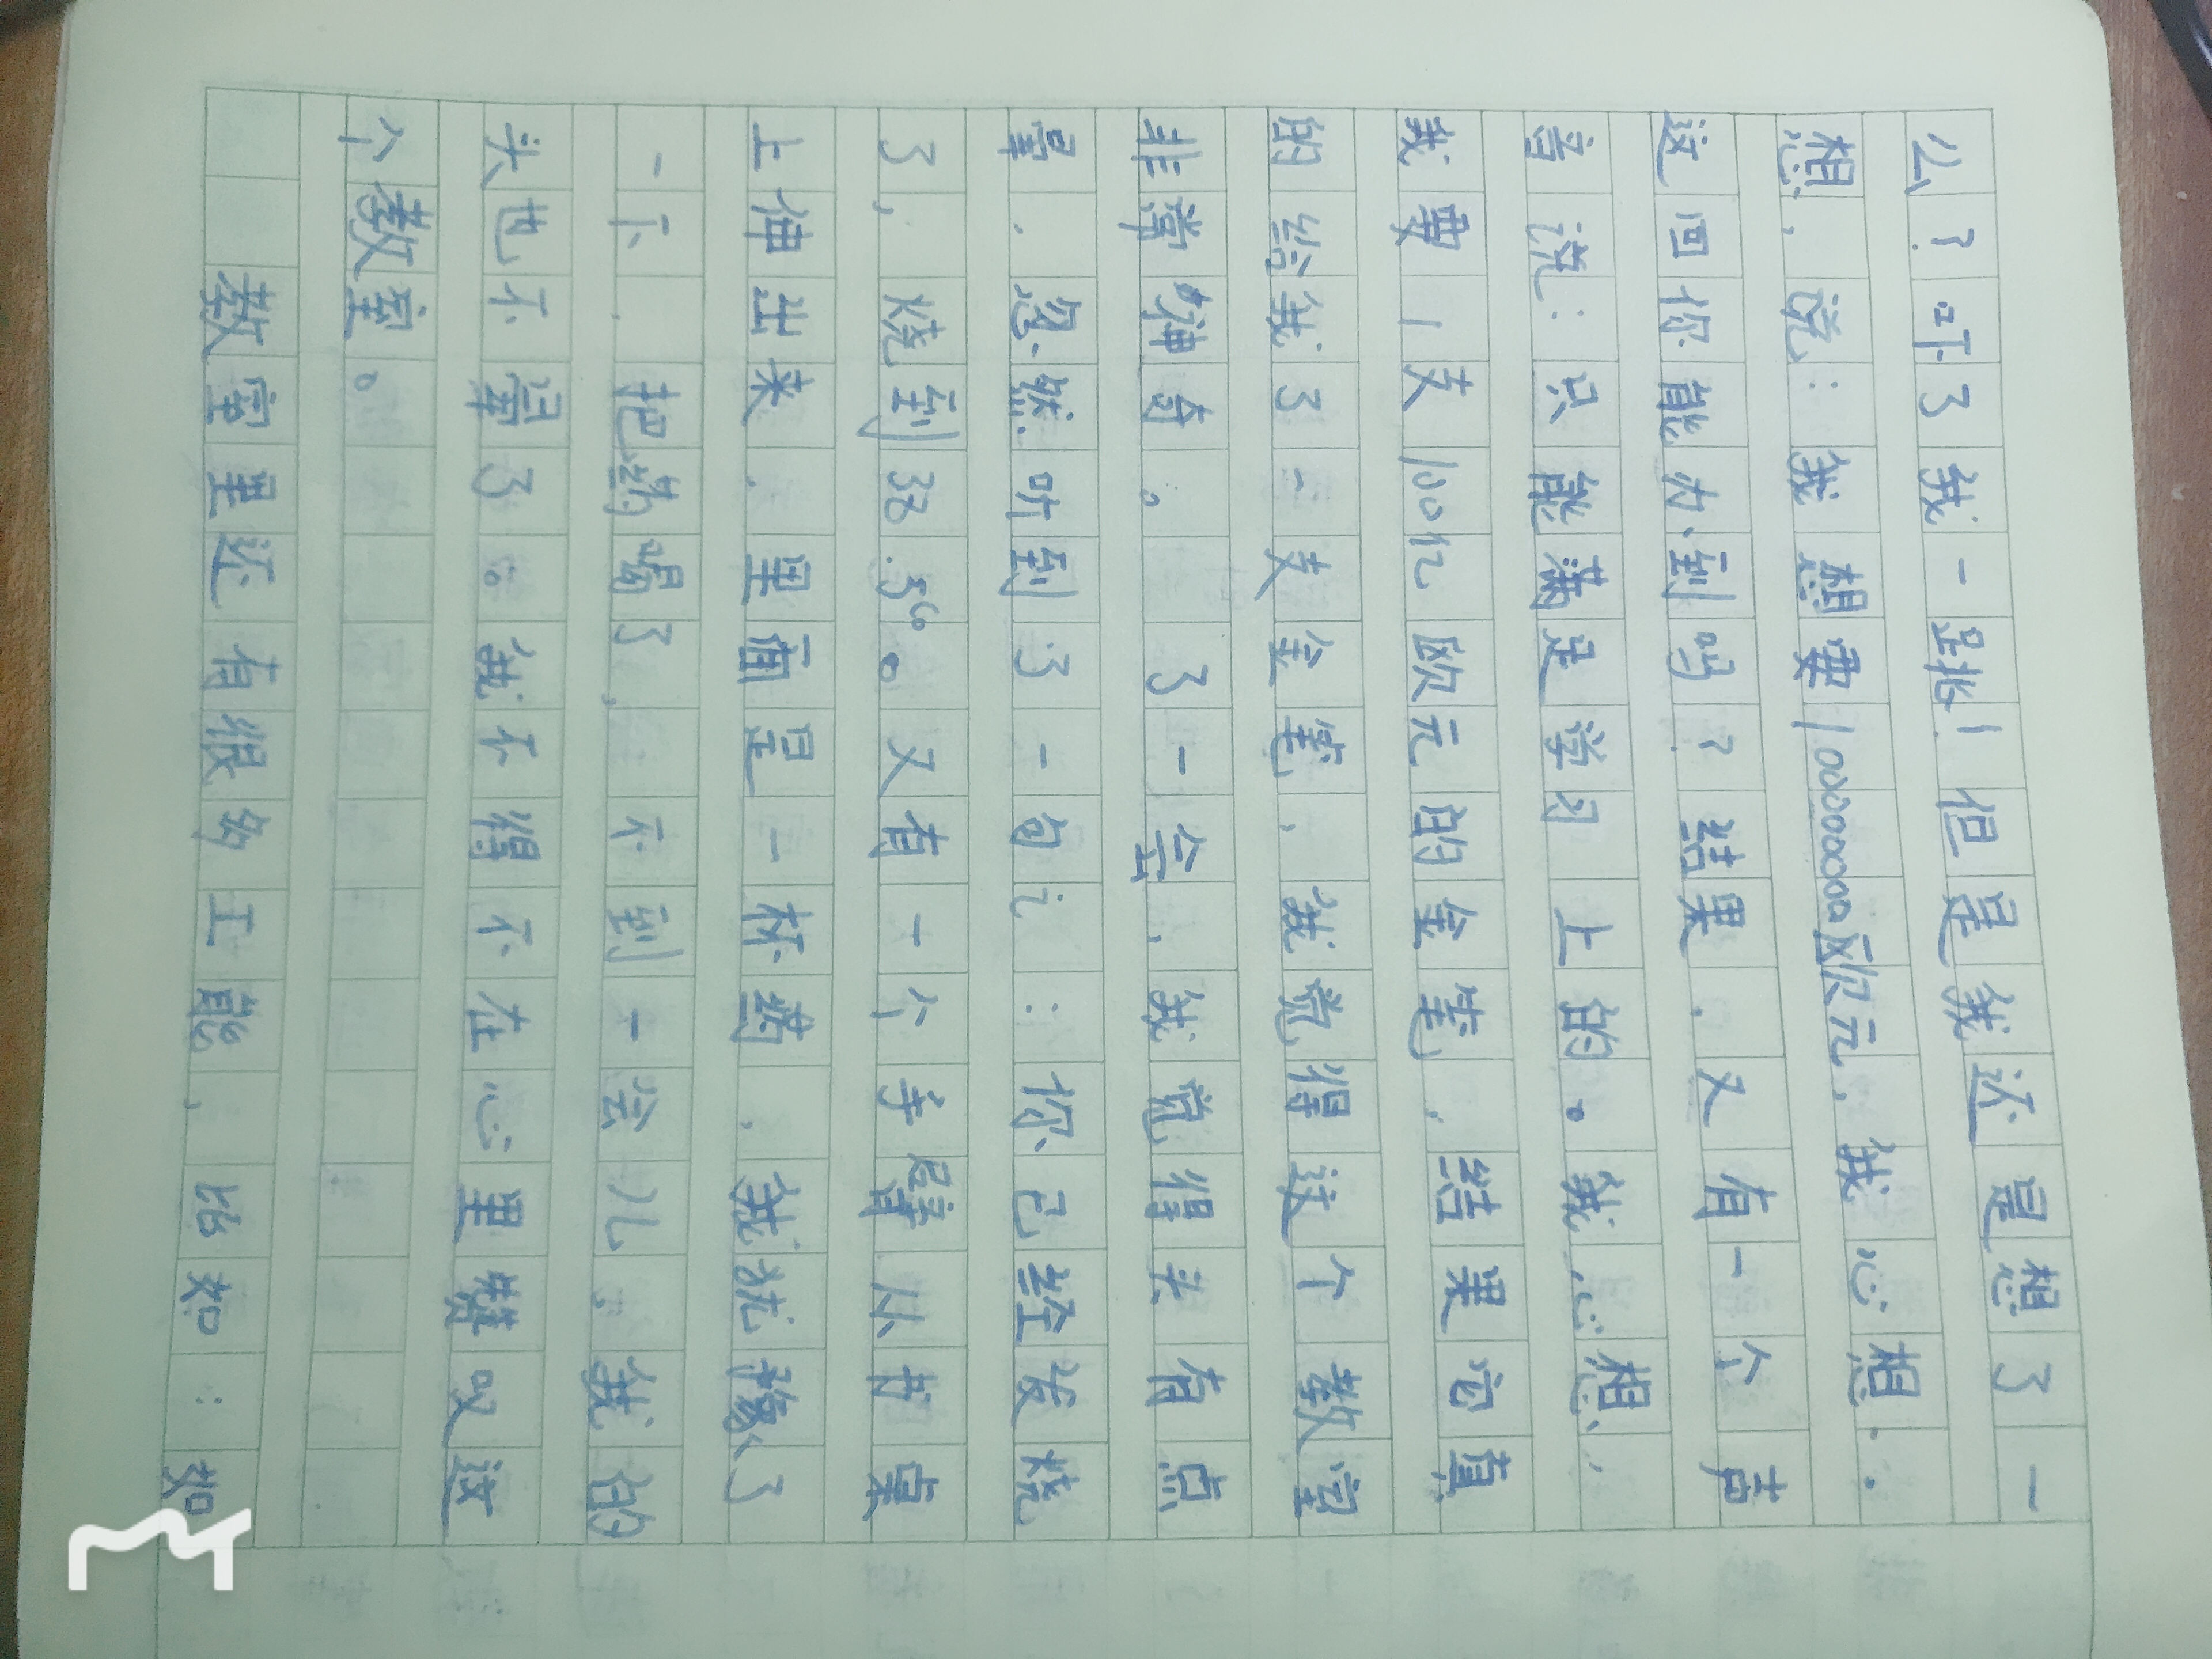 么？吓了我一跳！但是我还是想了一
想，说：我想要1000000000欧元，我心想，
这回你能办到吗？结果，又有一个声
音说：只能满足学习上的。我心想，
我要1支100亿欧元的金笔，结果它真
的给我了一支金笔，我觉得这个教室
非常神奇。了一会，我觉得头有点
晕，忽然听到了一句讠：你已经发烧
了，烧到38.5°。又有一个手臂从书桌
上伸出来，里面是一杯药，我就了
一下，把药喝了，不到一会儿，我的
头也不晕了。我不得不在心里赞叹这
个教室。
教室里还有很多工能，比如：如